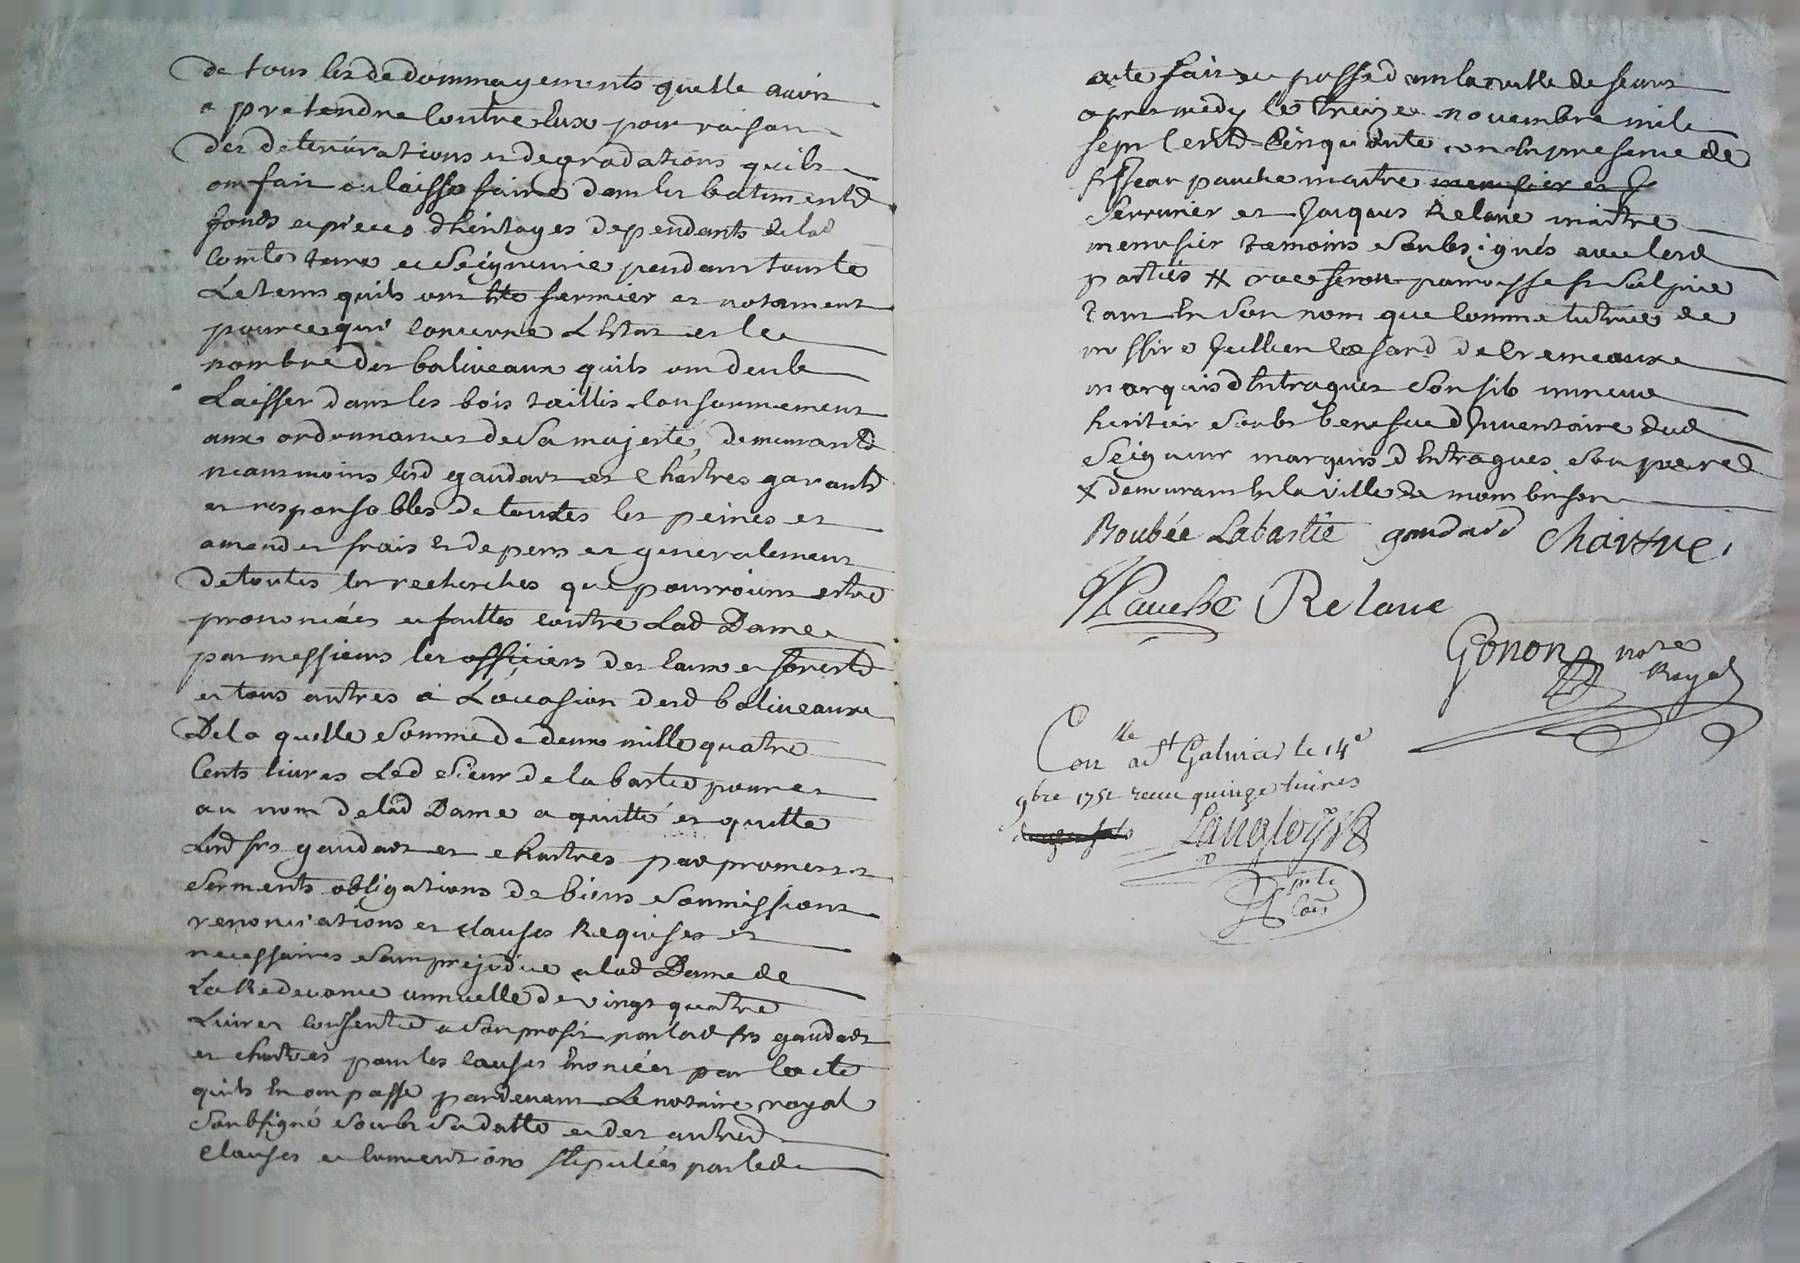 de tous les dedommagements quelle avoit
a pretendre contre eux pour raison
des deteriorations et degradations quils
ont fait ou laisse faire dans les batiments
fonds et pieces dheritages dependants de lad
comté terre et Seigneurie pendant tout
le tems quils ont été fermier et notament
pour ce qui concerne l'etat et le
nombre des baliveaux quils ont deub
Laisser dans les bois taillis conformement
aux ordonnances de Sa majesté, demeurants
neanmoins lesd gaudard et Chartres garants
et responsables de toutes les peines et
amendes frais et depens et generalement
de toutes les recherches qui pourroient estre
prononcées et faittes contre Lad Dame
par messieurs les officiers des eaux et forests
et tous autres a L'occasion desd baliveaux
De la quelle Somme de deux mille quatre
Cents livres Led Sieur de la bastie pour et
au nom de lad Dame a quitté et quitte
Lesd srs gaudard et Chartres par promesses
Serments obligations de biens Soumissions
renonciations et clauses Requises et
necessaires Sans prejudice a lad Dame de
La Redevance annuelle de vingt quatre
Livres consentie a Son profit par lesd srs gaudard
et chartres pour les causes enoncées par l'acte
quils en ont passé pardevant Le notaire royal
Soubsigné Soubs Sa datte et des autres
Clauses et conventions stipulées par led
acte fait et passé dans la ville de feurs
apres midy le treize novembre mile
sept cents cinquante en presence de
sr jean pauche maitre menusier et J
Serrurier et Jacques Relave maitre
menusier temoins Soubsignés avec lesd
parties X
tant en Son nom que comme tutrice de
messire Jullien Cesard de Cremeaux
marquis d'Entragues Son fils mineur
heritier Soubs benefice d'Inventaire dud
Seigneur marquis d'Entragues Son pere
X demeurant en la ville de montbrison
Boubée Labastie gaudard Chartre
Pauche Relave
Gonon nore
Royal
Con lle a St Galmier le 14e
9bre 1751 recu quinze livres
Langlois